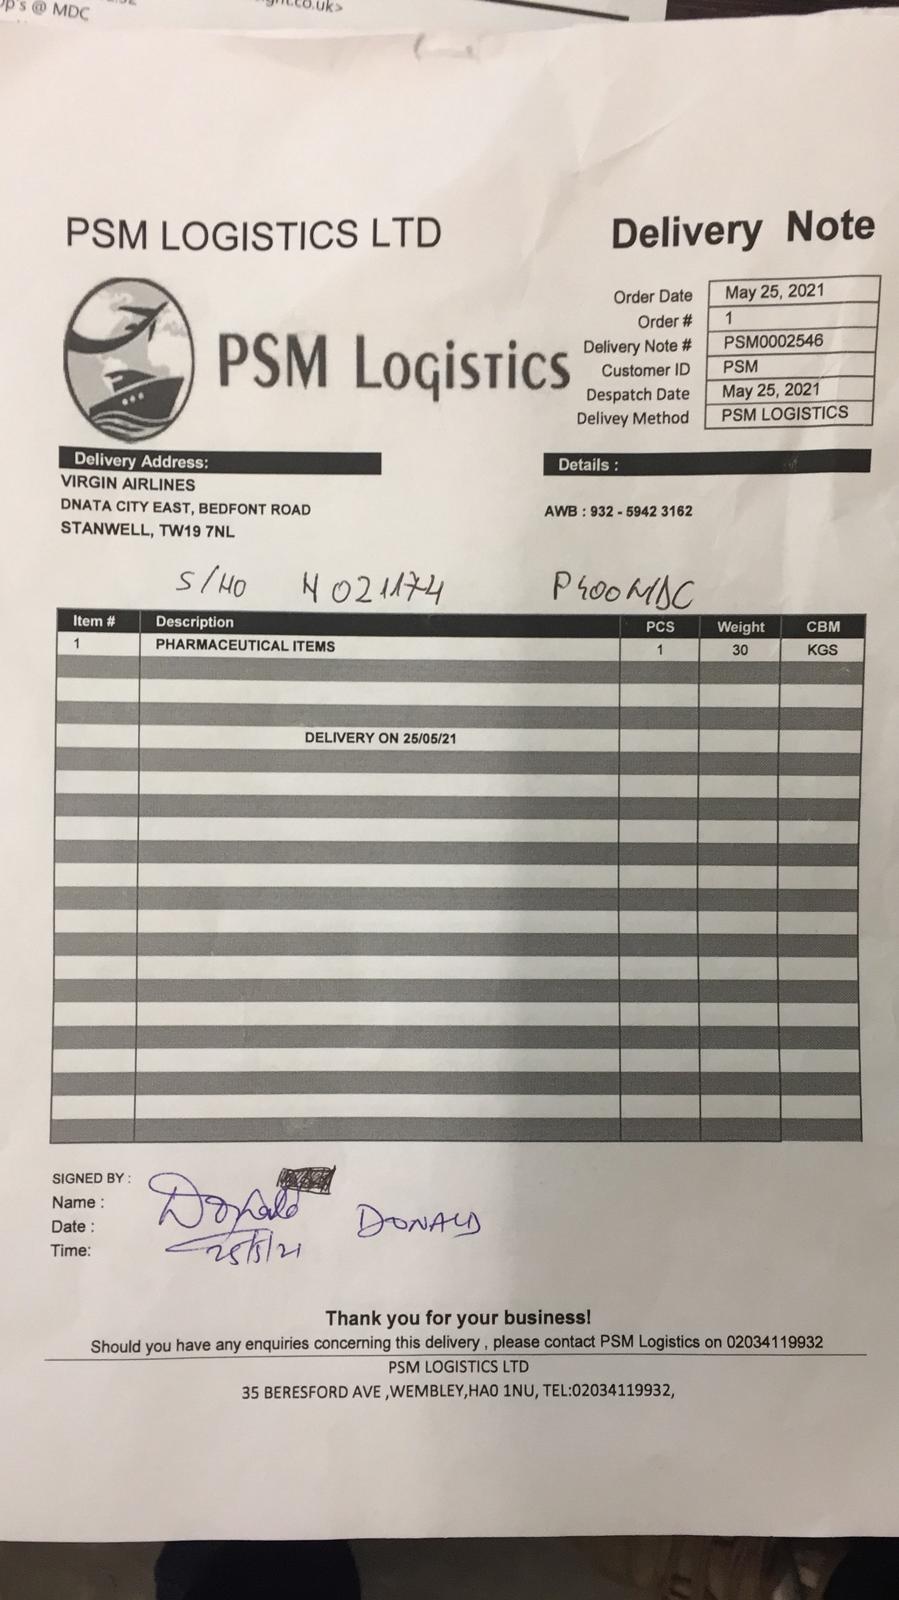 p's @ MDC
.co.uk>
PSM LOGISTICS LTD
Delivery Note
PSM Logistics
Order Date May 25, 2021
Order # 1
Delivery Note # PSM0002546
Customer ID PSM
Despatch Date May 25, 2021
Delivey Method PSM LOGISTICS
Delivery Address:
VIRGIN AIRLINES
DNATA CITY EAST, BEDFONT ROAD
STANWELL, TW19 7NL
Details :
AWB : 932 - 5942 3162
S/HO H021174 P400MDC
Item # Description PCS Weight CBM
1 PHARMACEUTICAL ITEMS 1 30 KGS
DELIVERY ON 25/05/21
SIGNED BY :
Name : Donald DONALD
Date : 25/5/21
Time:
Thank you for your business!
Should you have any enquiries concerning this delivery , please contact PSM Logistics on 02034119932
PSM LOGISTICS LTD
35 BERESFORD AVE ,WEMBLEY,HA0 1NU, TEL:02034119932,